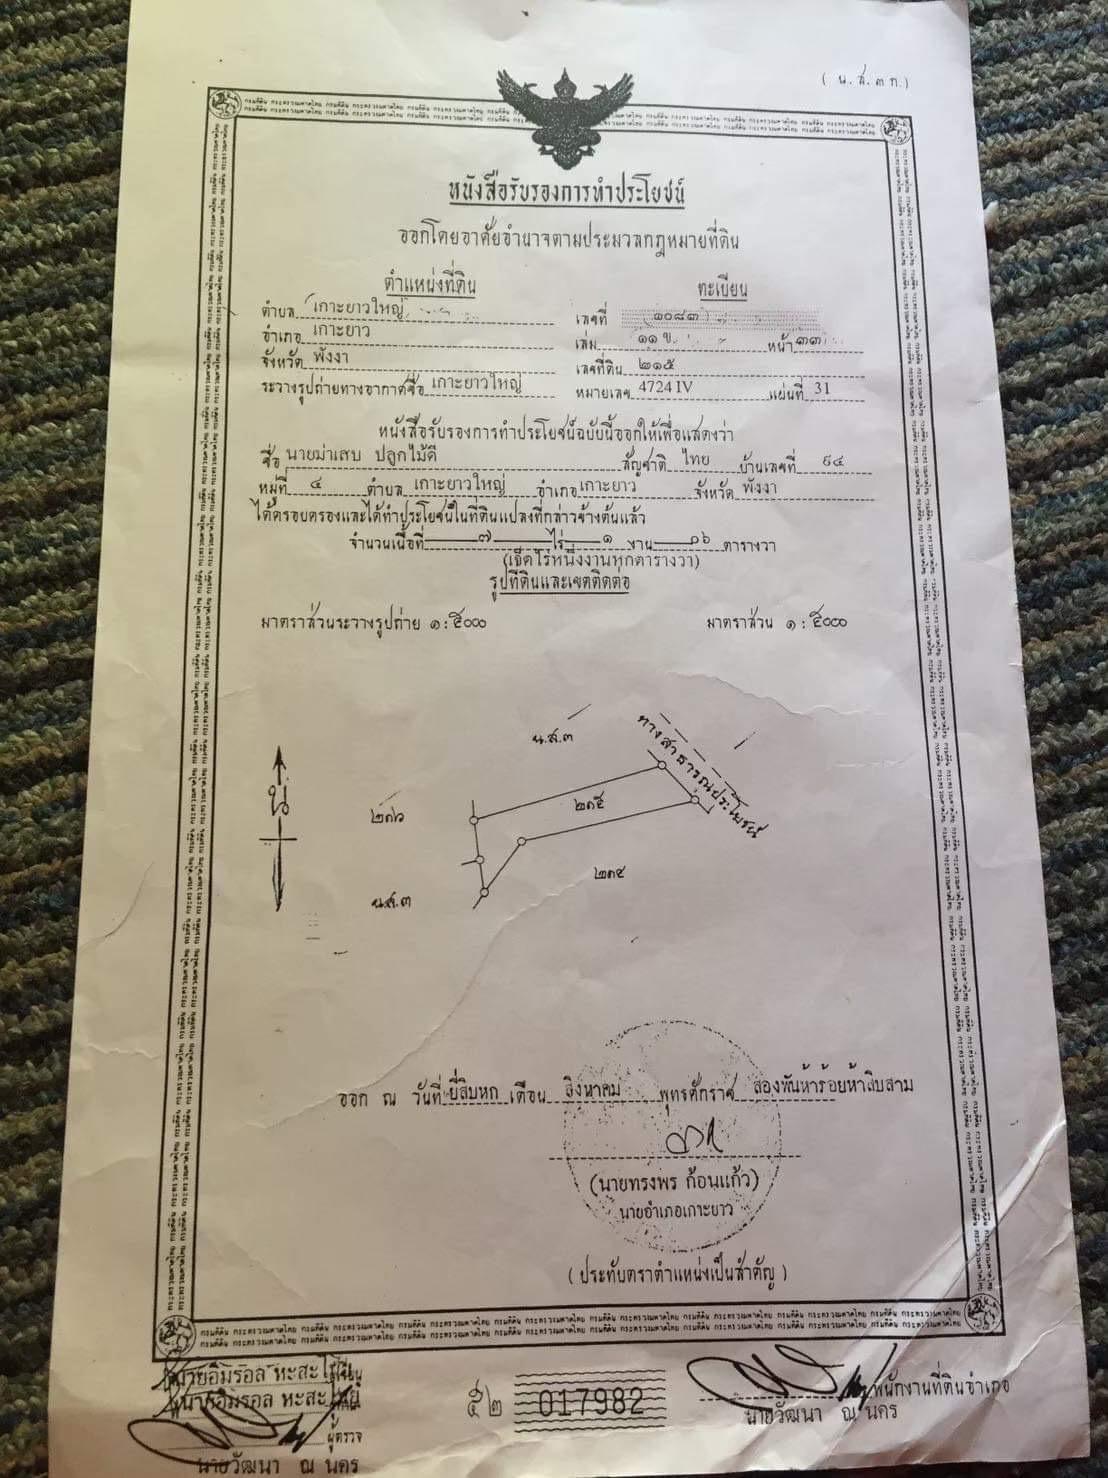 ( น.ส.๓ ก.)
หนังสือรับรองการทำประโยชน์
ออกโดยอาศัยอำนาจตามประมวลกฎหมายที่ดิน
ตำแหน่งที่ดิน ทะเบียน
ตำบล เกาะยาวใหญ่ เลขที่ ๑๐๘๓
อำเภอ เกาะยาว เล่ม ๑๑ ข หน้า ๓๓
จังหวัด พังงา เลขที่ดิน ๒๑๕
ระวางรูปถ่ายทางอากาศชื่อ เกาะยาวใหญ่ หมายเลข 4724 IV แผ่นที่ 31
หนังสือรับรองการทำประโยชน์ฉบับนี้ออกให้เพื่อแสดงว่า
ชื่อ นายม่าเสบ ปลูกไม้ดี สัญชาติ ไทย บ้านเลขที่ ๙๔
หมู่ที่ ๔ ตำบล เกาะยาวใหญ่ อำเภอ เกาะยาว จังหวัด พังงา
ได้ครอบครองและได้ทำประโยชน์ในที่ดินแปลงที่กล่าวข้างต้นแล้ว
จำนวนเนื้อที่ ๗ ไร่ ๑ งาน ๐๖ ตารางวา
(เจ็ดไร่หนึ่งงานหกตารางวา)
รูปที่ดินและเขตติดต่อ
มาตราส่วนระวางรูปถ่าย ๑ : ๕๐๐๐ มาตราส่วน ๑ : ๕๐๐๐
น.ส.๓
ทางสาธารณประโยชน์
น
๒๑๖
๒๑๕
๒๑๔
น.ส.๓
ออก ณ วันที่ ยี่สิบหก เดือน สิงหาคม พุทธศักราช สองพันห้าร้อยห้าสิบสาม
(นายทรงพร ก้อนแก้ว)
นายอำเภอเกาะยาว
(ประทับตราตำแหน่งเป็นสำคัญ)
กรมที่ดิน กระทรวงมหาดไทย
นายอิมรอล หะสะ ผู้เขียน
นายอิมรอล หะสะ
ผู้ตรวจ
นายวัฒนา ณ นคร
๕๒ 017982
พนักงานที่ดินอำเภอ
นายวัฒนา ณ นคร